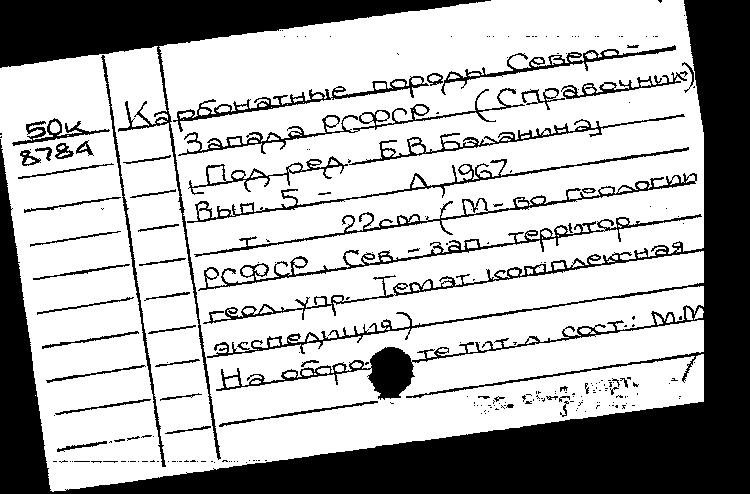 50к
8784
Карбонатные породы Северо-
Запада РСФСР. (Справочник)
[Под ред. Б.В. Баланина]
Вып. 5 - Л, 1967.
т. 22 cm. (М-во геологии
РСФСР, Сев.-зап. территор.
геол. упр. Темат. комплексная
экспедиция)
На оборо те тит. л. сост.: М.М